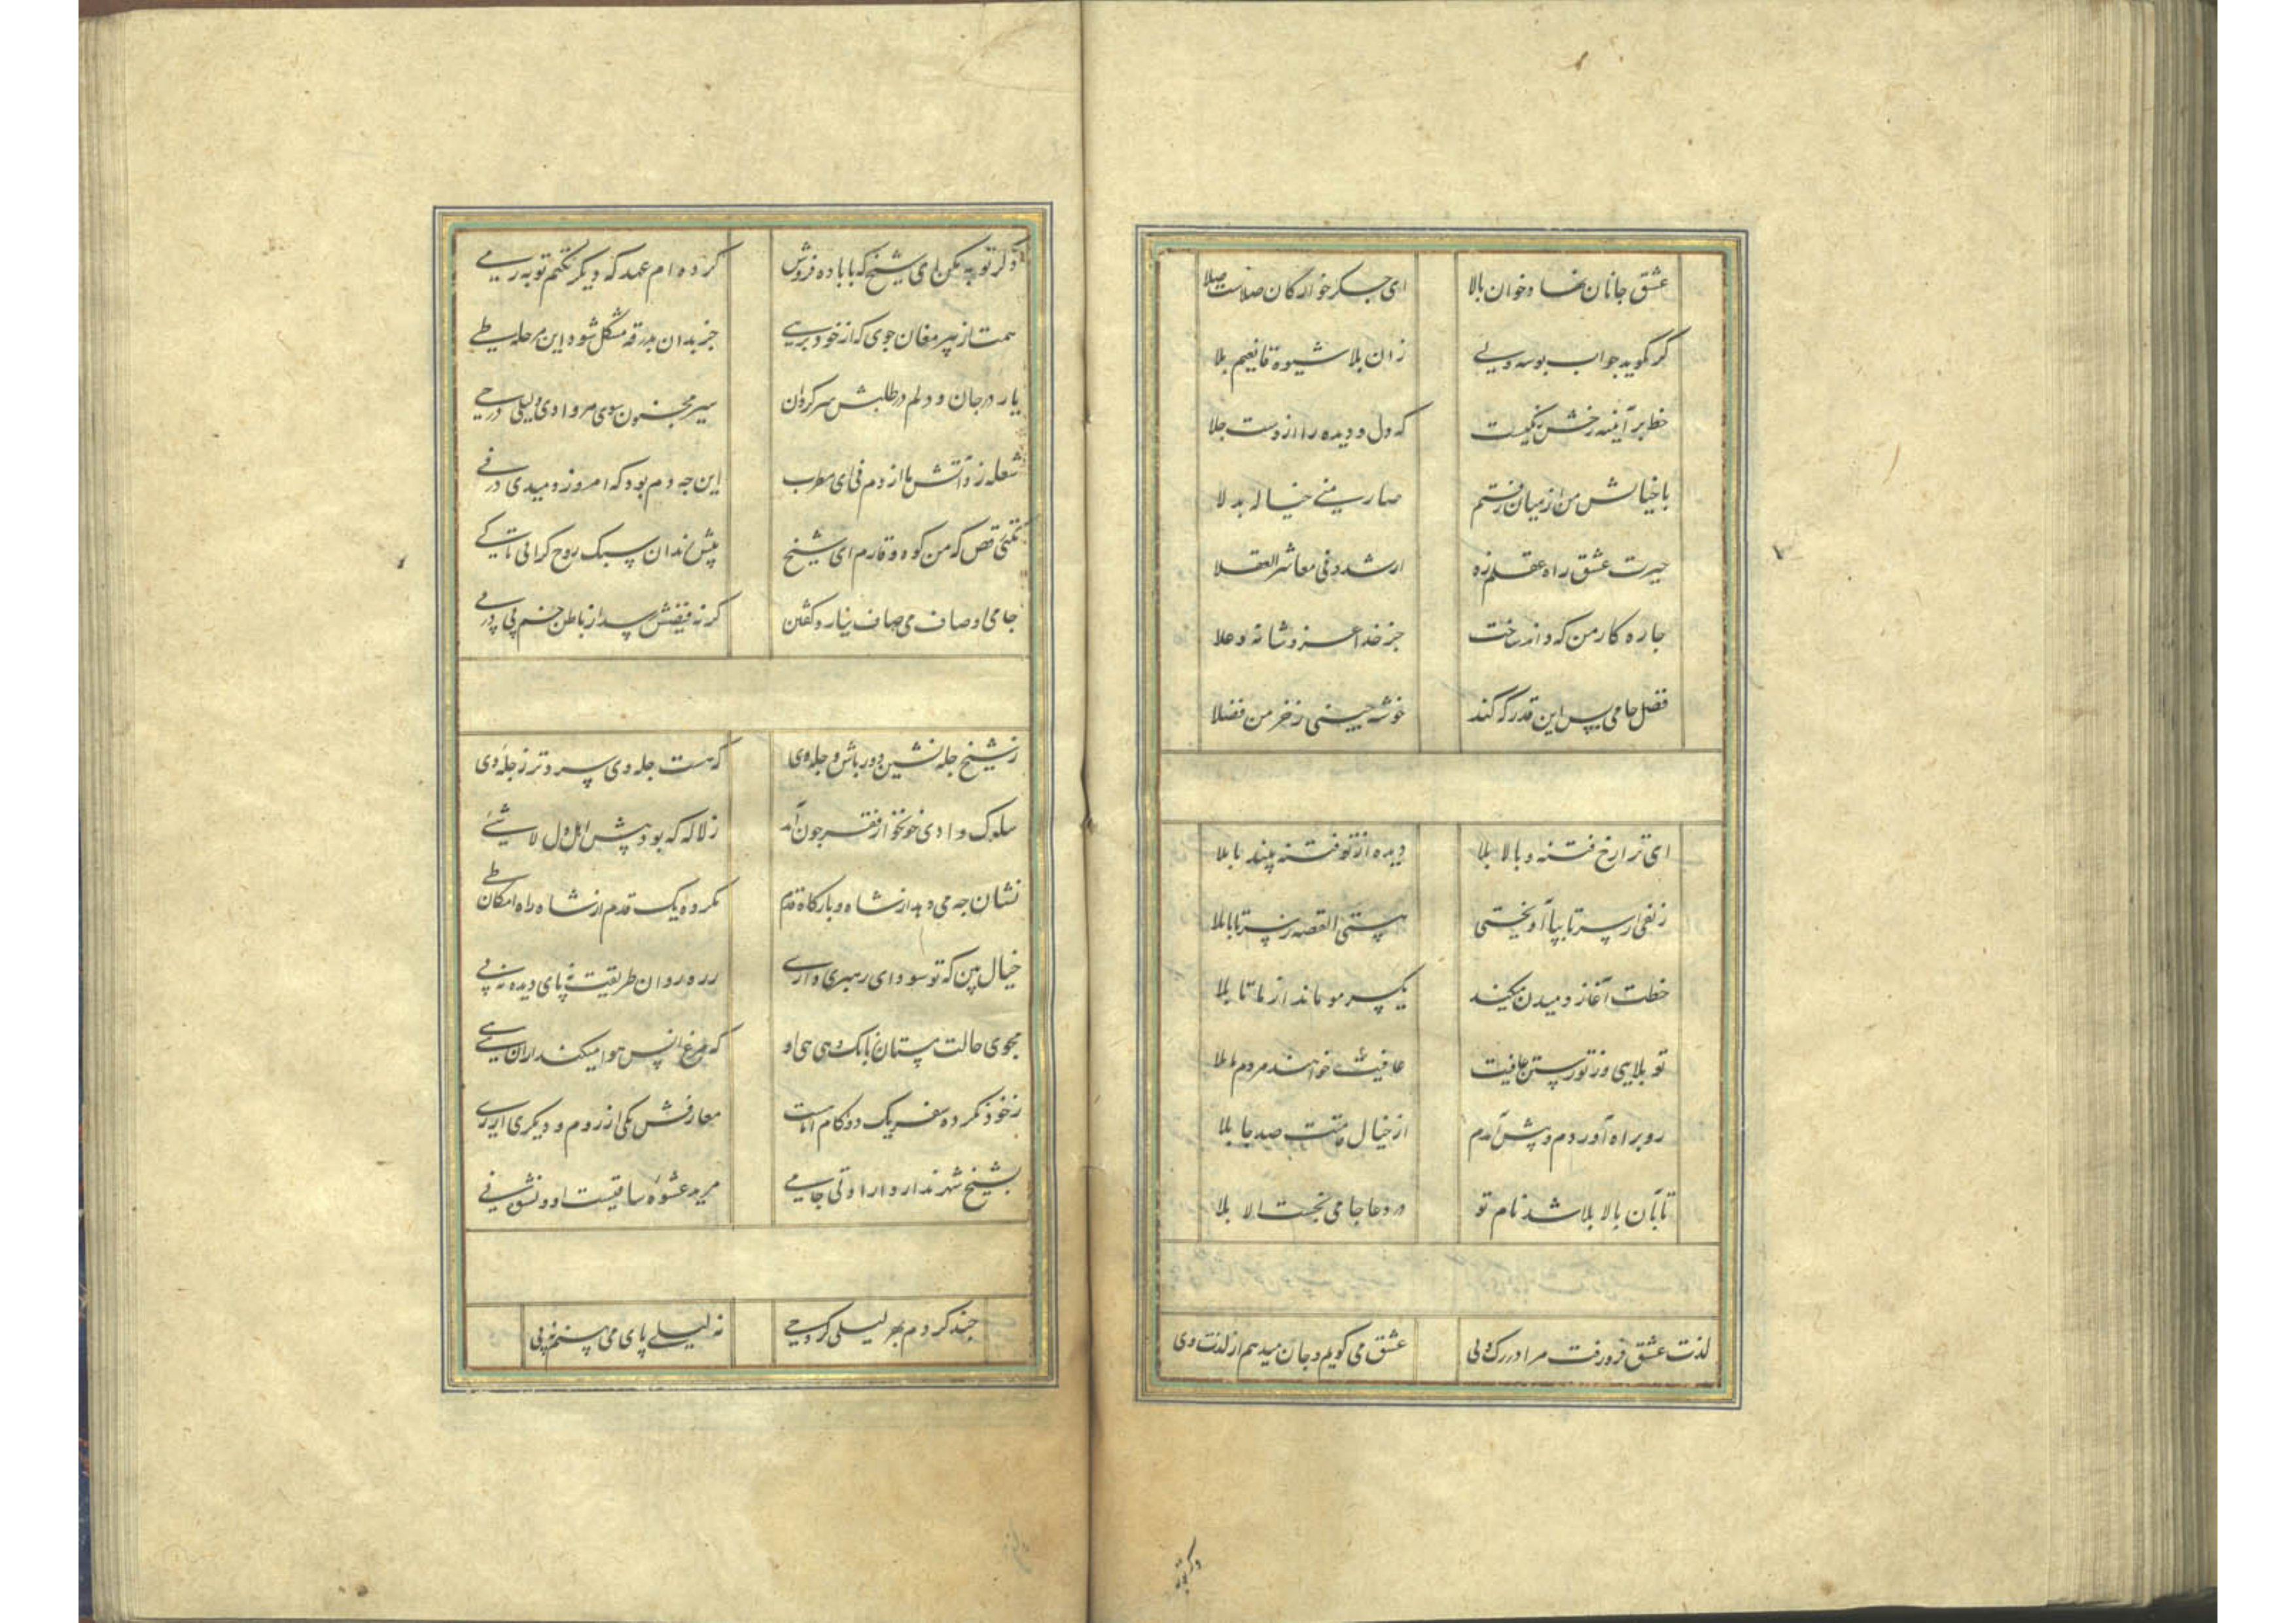 عشق جانان نهاد خوان بلا ای جگر خوارگان صلاست صلا
گر نگوید جواب بوسه و لی زان بلا شیوه قانعیم بلا
خط بر آینه رخش زنگیست که دل و دیده را ازوست جلا
با خیالش من از میان رفتم صار منی خیاله بدلا
حیرت عشق راه عقلم زد ارشدونی معاشر العقلا
چاره کار من که داند ساخت جز خدا عز و شانه و علا
فضل جامی بس این قدر که کند خوشه چینی ز خرمن فضلا
ای ترا رخ فتنه و بالا بلا دیده از تو فتنه بیند یا بلا
زلفی از سر تا بپا آویختی هستی القصه ز سر تا پا بلا
خطت آغاز دمیدن میکند یکسر مو ماند از ما تا بلا
تو بلایی وز تو رستن عافیت عافیت خواهند مردم ما بلا
رو براه آوردم و پیش آمدم از خیال قامتت صد جا بلا
تا بآن بالا بلا شد نام تو در دعا جامی نجست الا بلا
لذت عشق فرو رفت مرا در رگ و پی عشق می گویم و جان میدهم از لذت وی
ذکر توبه مکن ای شیخ که با باده فروش کرده ام عهد که دیگر نکنم توبه ز می
همت از پیر مغان جوی که از خود برهی جز بدان بدرقه مشکل شود این مرحله طی
یار در جان و دلم در طلبش سرگردان سیر مجنون بسوی هر وادی و لیلی در حی
شعله زد آتش ما از دم نی ای مطرب این چه دم بود که امروز دمیدی در نی
نکنی رقص که من کوه وقارم ای شیخ پیش رندان سبک روح گرانی تا کی
جامی اوصاف می صاف نیارد گفتن گر نه فیضش رسد از باطن خم پی در پی
ز شیخ چله نشین دور باش و چله وی که هست چله وی سردتر ز چله دی
سلوک وادی خونخوار فقر چون آمد ز لاکه که بود پیش اهل دل لا شئ
نشان چه می دهد از شاه و بارگاه قدم نکرده یک قدم از شاه راه امکان طی
خیال بین که تو سودای رهبری داری ز ره روان طریقت نه پای دیده نه پی
مجوی حالت مستان ز بانگ هی هی او که مرغ انس هوا میکند از آن هی هی
ز خود نکرده سفر یک دو گام اما هست معارفش یکی از روم و دیگری از ری
بشیخ شهر ندارد ارادتی جامی مرید عشوه ساقیست او و نشوه می
چند گردم بهر لیلی گرد حی نه لیلی پای می بینم نه پی
ذکر توبه